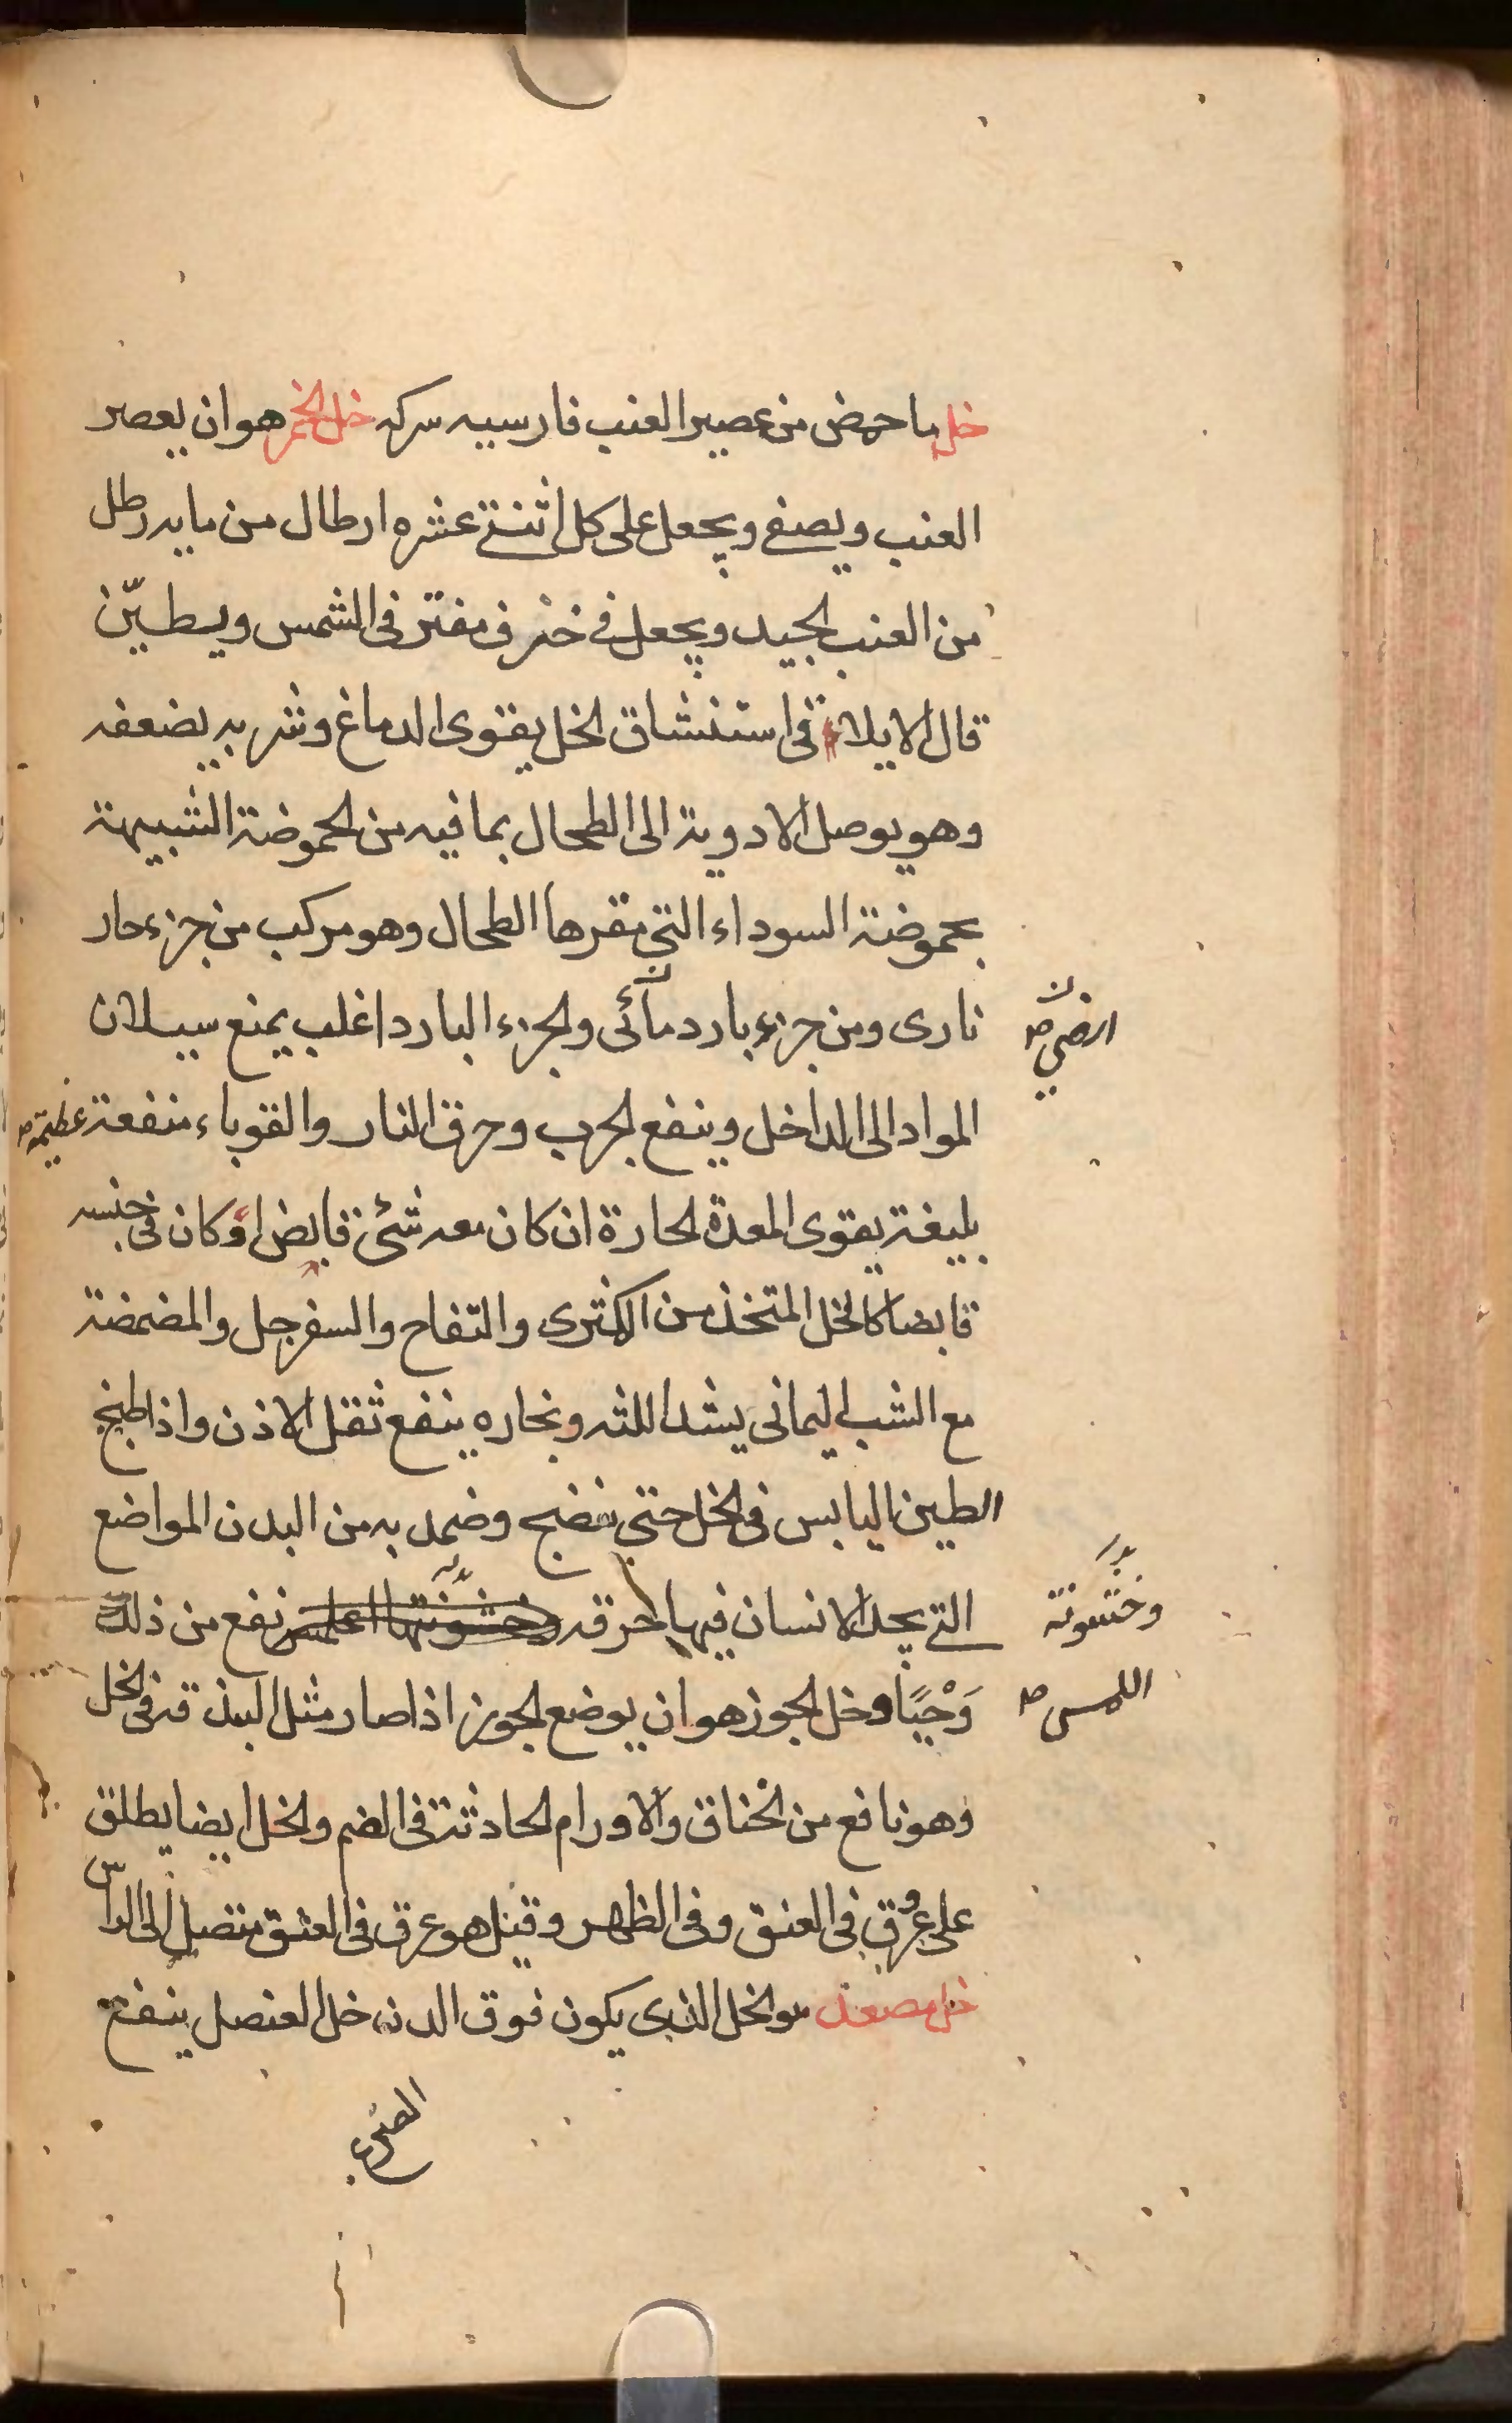 خل ما حمض من عصير العنب فارسيه سركه خل الخمر هو ان يعصر
العنب ويصفى ويجعل على كل اثنتى عشره ارطال من مايه رطل
من العنب الجيد ويجعل فى خزف مقتر فى الشمس ويطيّن
قال الايلاقى استنشاق الخل يقوى الدماغ وشربه يضعفه
وهو يوصل الادوية الى الطحال بما فيه من الحموضة الشبيهة
بحموضة السوداء التى مقرها الطحال وهو مركب من جزء حار
نارى ومن جزء بارد مآئى والجزء البارد اغلب يمنع سيلان
ارضى صح
المواد الى الداخل وينفع الجرب وحرق النار والقوباء منفعة عظيمة صح
بليغة يقوى المعدة الحارة ان كان معه شئ قابض او كان فى جنسه
قابضا كالخل المتخذ من الكمثرى والتفاح والسفرجل والمضمضة
مع الشب اليمانى يشد اللثه وبخاره ينفع ثقل الاذن واذا طبخ
الطين اليابس فى الخل حتى ينضج وضمد به من البدن المواضع
التى يجد الانسان فيها حرقه وخشونتها نفع من ذلك
وخشونة
اللمس صح
وَحْيًا وخل الجوز هو ان يوضع الجوز اذا صار مثل البندقة فى الخل
وهو نافع من الخناق والاورام الحادثة فى الفم والخل ايضا يطلق
على عرق فى العنق وفى الظهر وقيل هو عرق فى العنق متصل الى الراس
خل مصعد هو الخل الذى يكون فوق الدن خل العنصل ينفع
الصرع